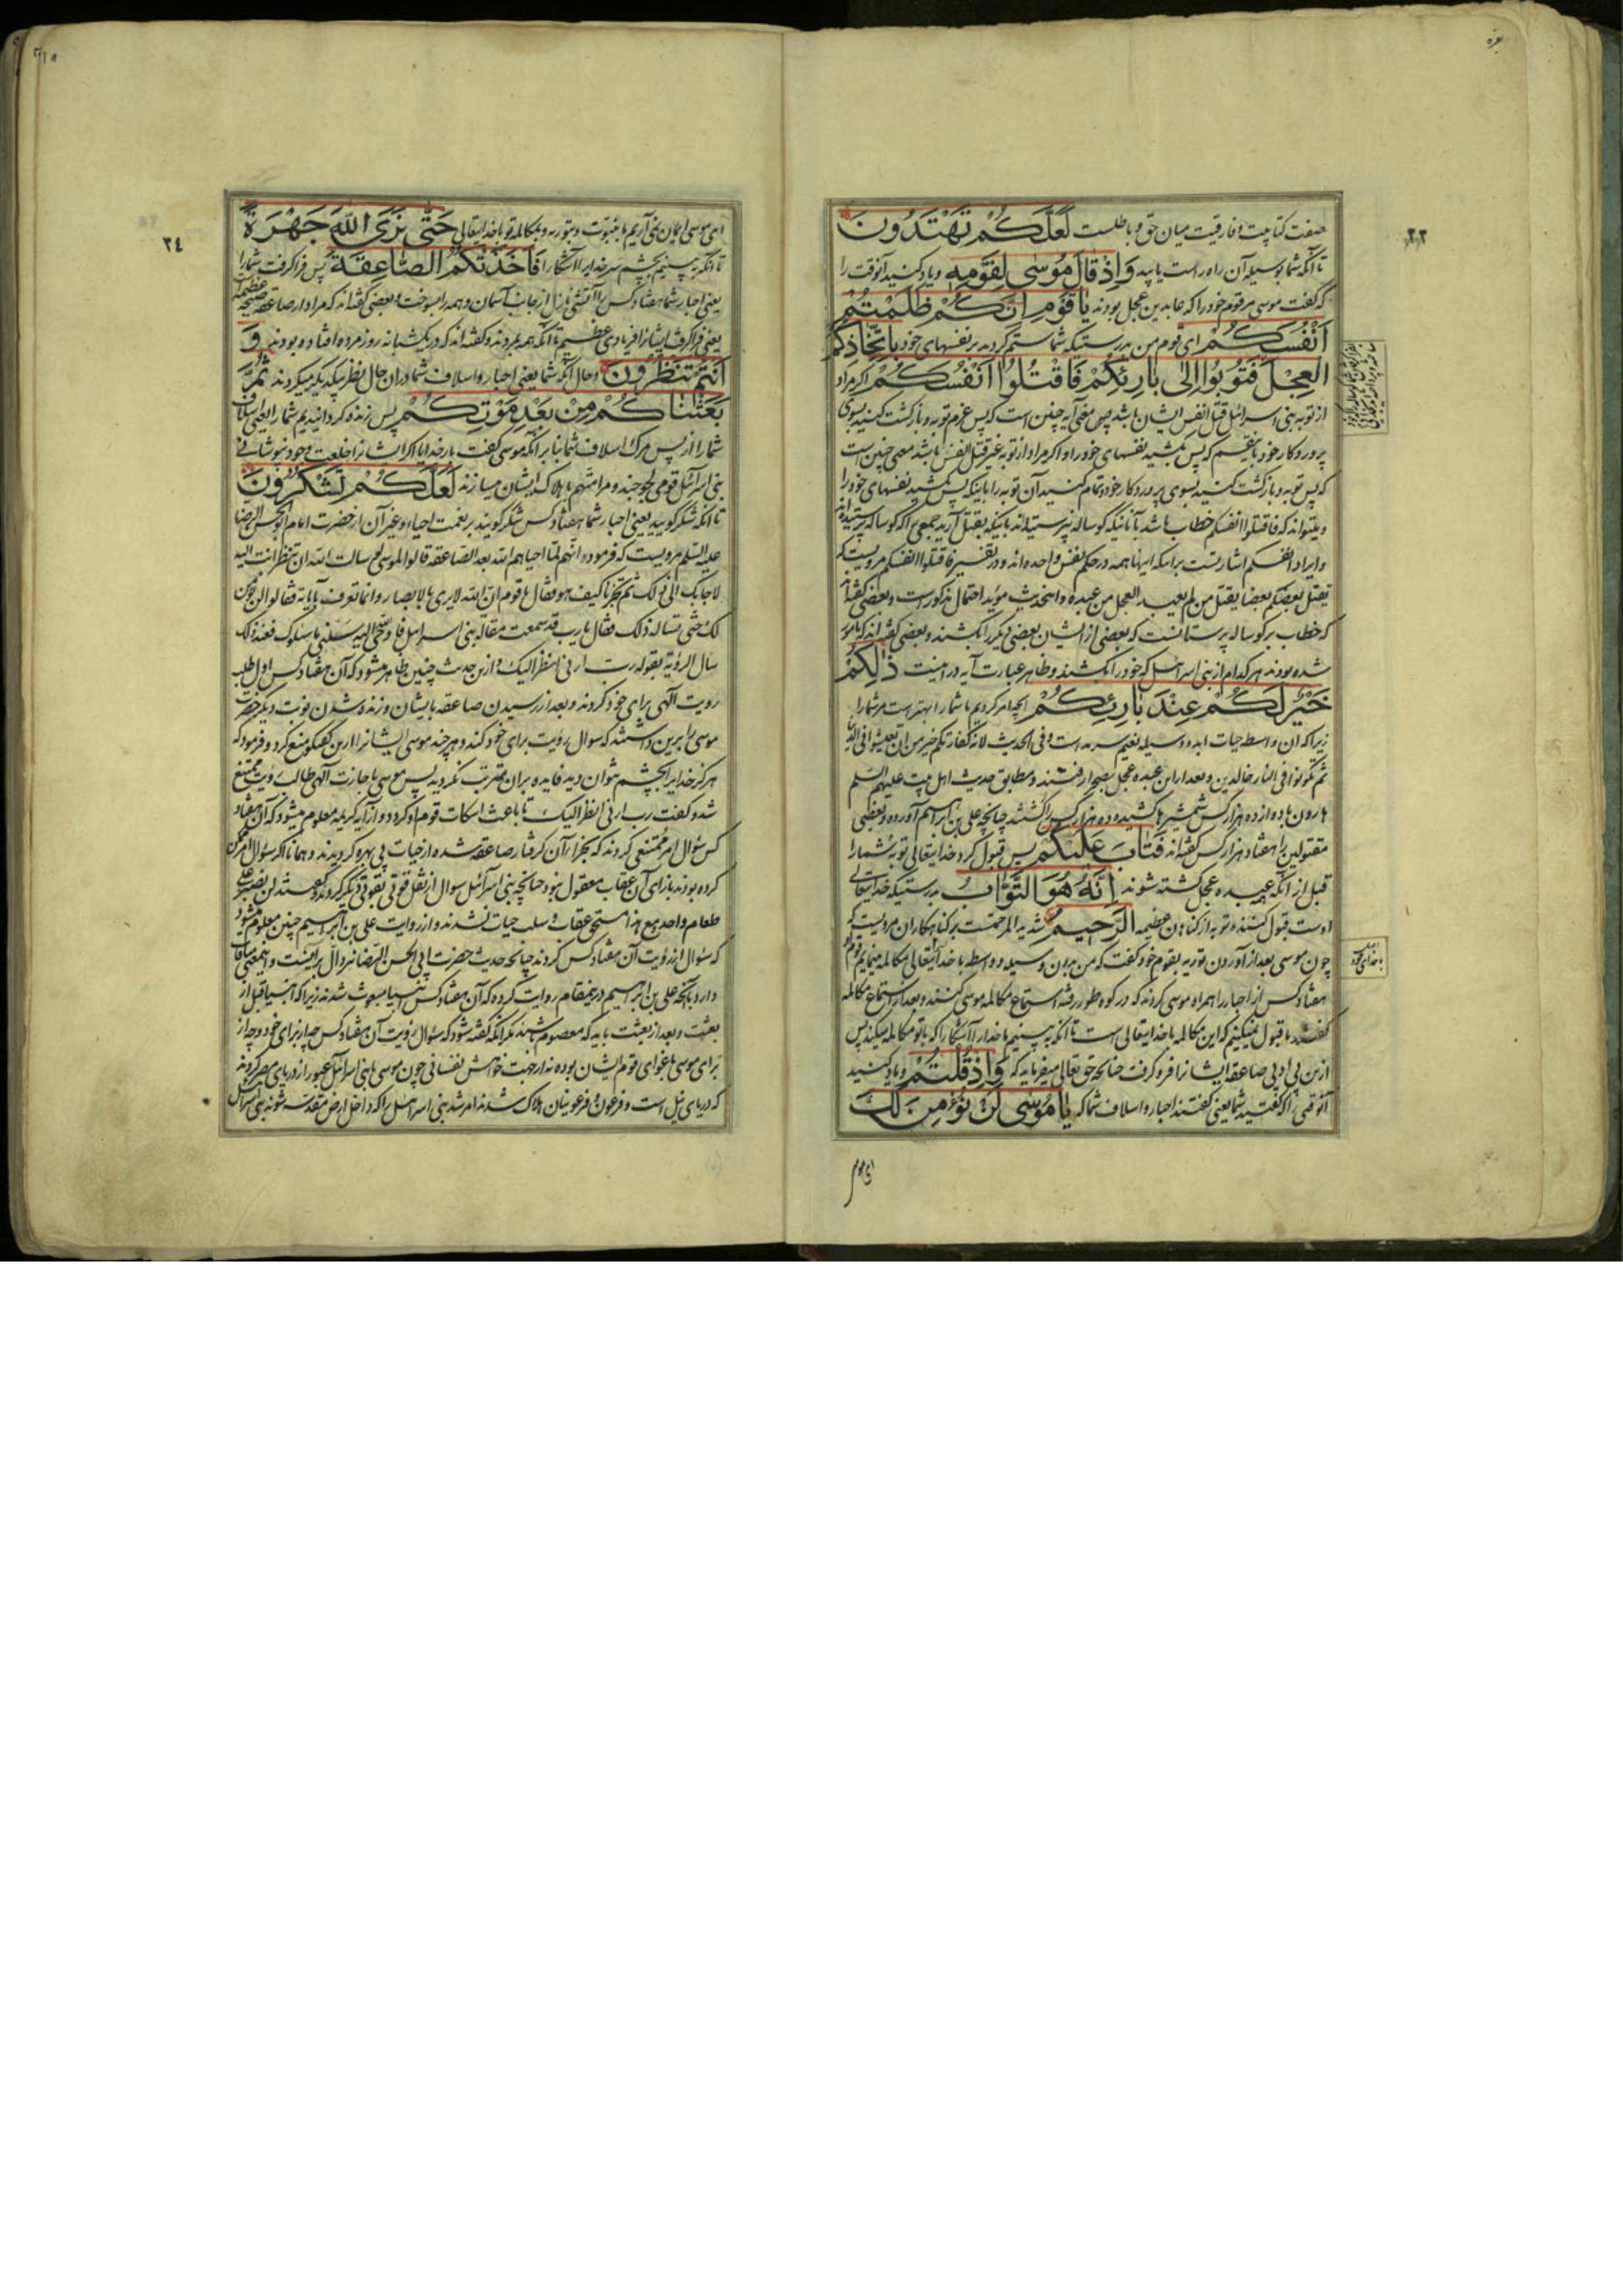 بقره
۲۳
صفت کتابیت و فارقیت میان حق و باطلست لَعَلَّكُمْ تَهْتَدُونَ
تا آنکه شما بوسیله آن راه راست یابید وَإِذْ قَالَ مُوسَى لِقَوْمِهِ و یاد کنید آنوقت را
که گفت موسی مر قوم خود را که عابدین عجل بودند يَا قَوْمِ إِنَّكُمْ ظَلَمْتُمْ
أَنْفُسَكُمْ ای قوم من بدرستیکه شما ستم کردید بر نفسهای خود بِاتِّخَاذِكُمُ
الْعِجْلَ فَتُوبُوا إِلَى بَارِئِكُمْ فَاقْتُلُوا أَنْفُسَكُمْ اگر مراد
از توبه بنی اسرائیل قتل انفس ایشان باشد پس معنی آیه چنین است که پس عزم توبه و بازگشت کنید بسوی
پروردکار خود باینقسم که پس بکشید نفسهای خود را و اگر مراد از توبه غیر قتل انفس باشد معنی چنین است
که پس توبه و بازگشت کنید بسوی پروردکار خود و تمام کنید آن توبه را باینکه پس بکشید نفسهای خود را
و میتواند که فاقتلوا انفسکم خطاب باشد بآنانیکه گوساله نپرستیده‌اند باینکه بقتل آرید جمعی را که گوساله پرستیده‌اند
و ایراد انفسکم اشارتست براینکه اینها همه در حکم نفس واحده‌اند و در تفسیر فاقتلوا انفسکم مرویست که
یقتل بعضکم بعضا یقتل من لم یعبد العجل من عبده و اینحدیث مؤید احتمال مذکور است و بعضی گفته‌اند
که خطاب بر گوساله پرستانست که بعضی از ایشان بعضی دیگر را بکشند و بعضی گفته‌اند که مامور
شده بودند هر کدام از بنی اسرائیل که خود را بکشند و ظاهر عبارت آیه در اینست ذَلِكُمْ
خَيْرٌ لَكُمْ عِنْدَ بَارِئِكُمْ آنچه امر کردیم ما شما را بهتر است مر شما را
زیرا که آن واسطه حیات ابد و وسیله نعیم سرمد است و فی الحدیث لانه کفارتکم خیر من ان تعیشوا فی الدنیا
ثم تکونوا فی النار خالدین و بعد از این عبده عجل بصحرا رفتند و مطابق حدیث اهل بیت علیهم السلم
هارون با دوازده هزار کس شمشیرها کشیده ده هزار کس را کشتند چنانچه علی بن ابراهیم آورده و بعضی
مقتولین را هفتاد هزار کس گفته‌اند فَتَابَ عَلَيْكُمْ پس قبول کرد خدایتعالی توبه شما را
قبل از آنکه همه عبده عجل کشته شوند إِنَّهُ هُوَ التَّوَّابُ بدرستیکه خدایتعالی
اوست قبول کننده توبه از گناهان عظیمه الرَّحِيمُ شدید المرحمتست بر گناهکاران مرویست که
چون موسی بعد از آوردن توریه بقوم خود گفت که من بدون وسیله و واسطه با خدایتعالی مکالمه مینمایم قوم او
هفتاد کس از احبار را همراه موسی کردند که در کوه طور رفته استماع مکالمه موسی کنند و بعد از استماع مکالمه
گفتند ما قبول نمیکنیم که این مکالمه با خدایتعالی است تا آنکه به بینیم ما خدا را آشکارا که با تو مکالمه میکند پس
ازین بی ادبی صاعقه ایشانرا فرو گرفت چنانچه حق تعالی میفرماید که وَإِذْ قُلْتُمْ و یاد کنید
آنوقتی را که گفتید شما یعنی گفتند احبار و اسلاف شما که يَا مُوسَى لَنْ نُؤْمِنَ لَكَ
ای موسی
۲٤
ای موسی ایمان نمی آریم ما بنبوت و بتوریه و بمکالمه تو با خدایتعالی حَتَّى نَرَى اللَّهَ جَهْرَةً
تا آنکه به بینیم بچشم سر خدایرا آشکارا فَأَخَذَتْكُمُ الصَّاعِقَةُ پس فرا گرفت شما را
یعنی احبار شما هفتاد کس را آتشی نازل از جانب آسمان و همه را بسوخت و بعضی گفته‌اند که مراد از صاعقه صیحه عظیمه است
یعنی فرا گرفت ایشانرا فریادی عظیم تا آنکه همه بمردند و گفته‌اند که در یکشبانه روز مرده افتاده بودند وَ
أَنْتُمْ تَنْظُرُونَ و حال آنکه شما یعنی احبار و اسلاف شما دران حال نظر بیکدیگر میکردند ثُمَّ
بَعَثْنَاكُمْ مِنْ بَعْدِ مَوْتِكُمْ پس زنده کردانیدیم شما را یعنی اسلاف
شما را از پس مرک اسلاف شما بنا بر آنکه موسی گفت بار خدایا اگر ایشانرا خلعت وجود نپوشانی
بنی اسرائیل قومی لجوجند و مرا متهم با هلاک ایشان میسازند لَعَلَّكُمْ تَشْكُرُونَ
تا آنکه شکر گویید یعنی احبار شما هفتاد کس شکر گویند بر نعمت احیاء و غیر آن از حضرت امام ابوالحسن الرضا
علیه السلم مرویست که فرموده انهم لما احیاهم الله بعد الصاعقه قالوا لموسی لو سالت الله ان تنظر انت الیه
لاجابک الی ذلک ثم تخبرنا کیف هو فقال یا قوم ان الله لا یری بالابصار و انما تعرف بآیاته فقالوا لن نؤمن
لک حتی تساله ذلک فقال یا رب قد سمعت مقاله بنی اسرائیل فاوحی الله الیه سلنی ما سئلوک فعند ذلک
سال الرؤیة بقوله رب ارنی انظر الیک و ازین حدیث چنین ظاهر میشود که آن هفتاد کس اول طلب
رویت الهی برای خود کردند و بعد از رسیدن صاعقه بایشان و زنده شدن نوبت دیگر حضرت
موسی را برین داشتند که سوال رؤیت برای خود کند و هر چند موسی ایشانرا ازین گفتگو منع کرد و فرمود که
هرکز خدایرا بچشم نتوان دید فایده بر ان مترتب نگردید پس موسی باجازت الهی طالب رؤیت ممتنع
شد و گفت رب ارنی انظر الیک تا باعث اسکات قوم او گردد و از آیه کریمه معلوم میشود که آن هفتاد
کس سؤال امر ممتنعی کردند که بجزای آن گرفتار صاعقه شده از حیات بی بهره گردیدند و همانا اگر سؤال امر ممکن
کرده بودند بازای آن عقاب معقول نبود چنانچه بنی اسرائیل سوال از نقل قوتی بقوتی دیگر کردند و گفتند لن نصبر علی
طعام واحد مع هذا مستحق عقاب و سلب حیات نشدند و از روایت علی بن ابراهیم چنین معلوم میشود
که سؤال از رؤیت آن هفتاد کس کردند چنانچه حدیث حضرت ابی الحسن الرضا نیز دال براینست
دارد بآنچه علی بن ابراهیم درینمقام روایت کرده که آن هفتاد کس انبیا مبعوث شدند زیرا که انبیا قبل از
بعثت و بعد از بعثت باید که معصوم باشند مگر آنکه گفته شود که سؤال رؤیت آن هفتاد کس
برای موسی باغوای قوم ایشان بوده نه از جهت خواهش نفسانی چون موسی با بنی اسرائیل عبور از دریای مصر کردند
که دریای نیل است و فرعون و فرعونیان هلاک شدند امر شد بنی اسرائیل را که داخل ارض مقدسه شوند بنی اسرائیل